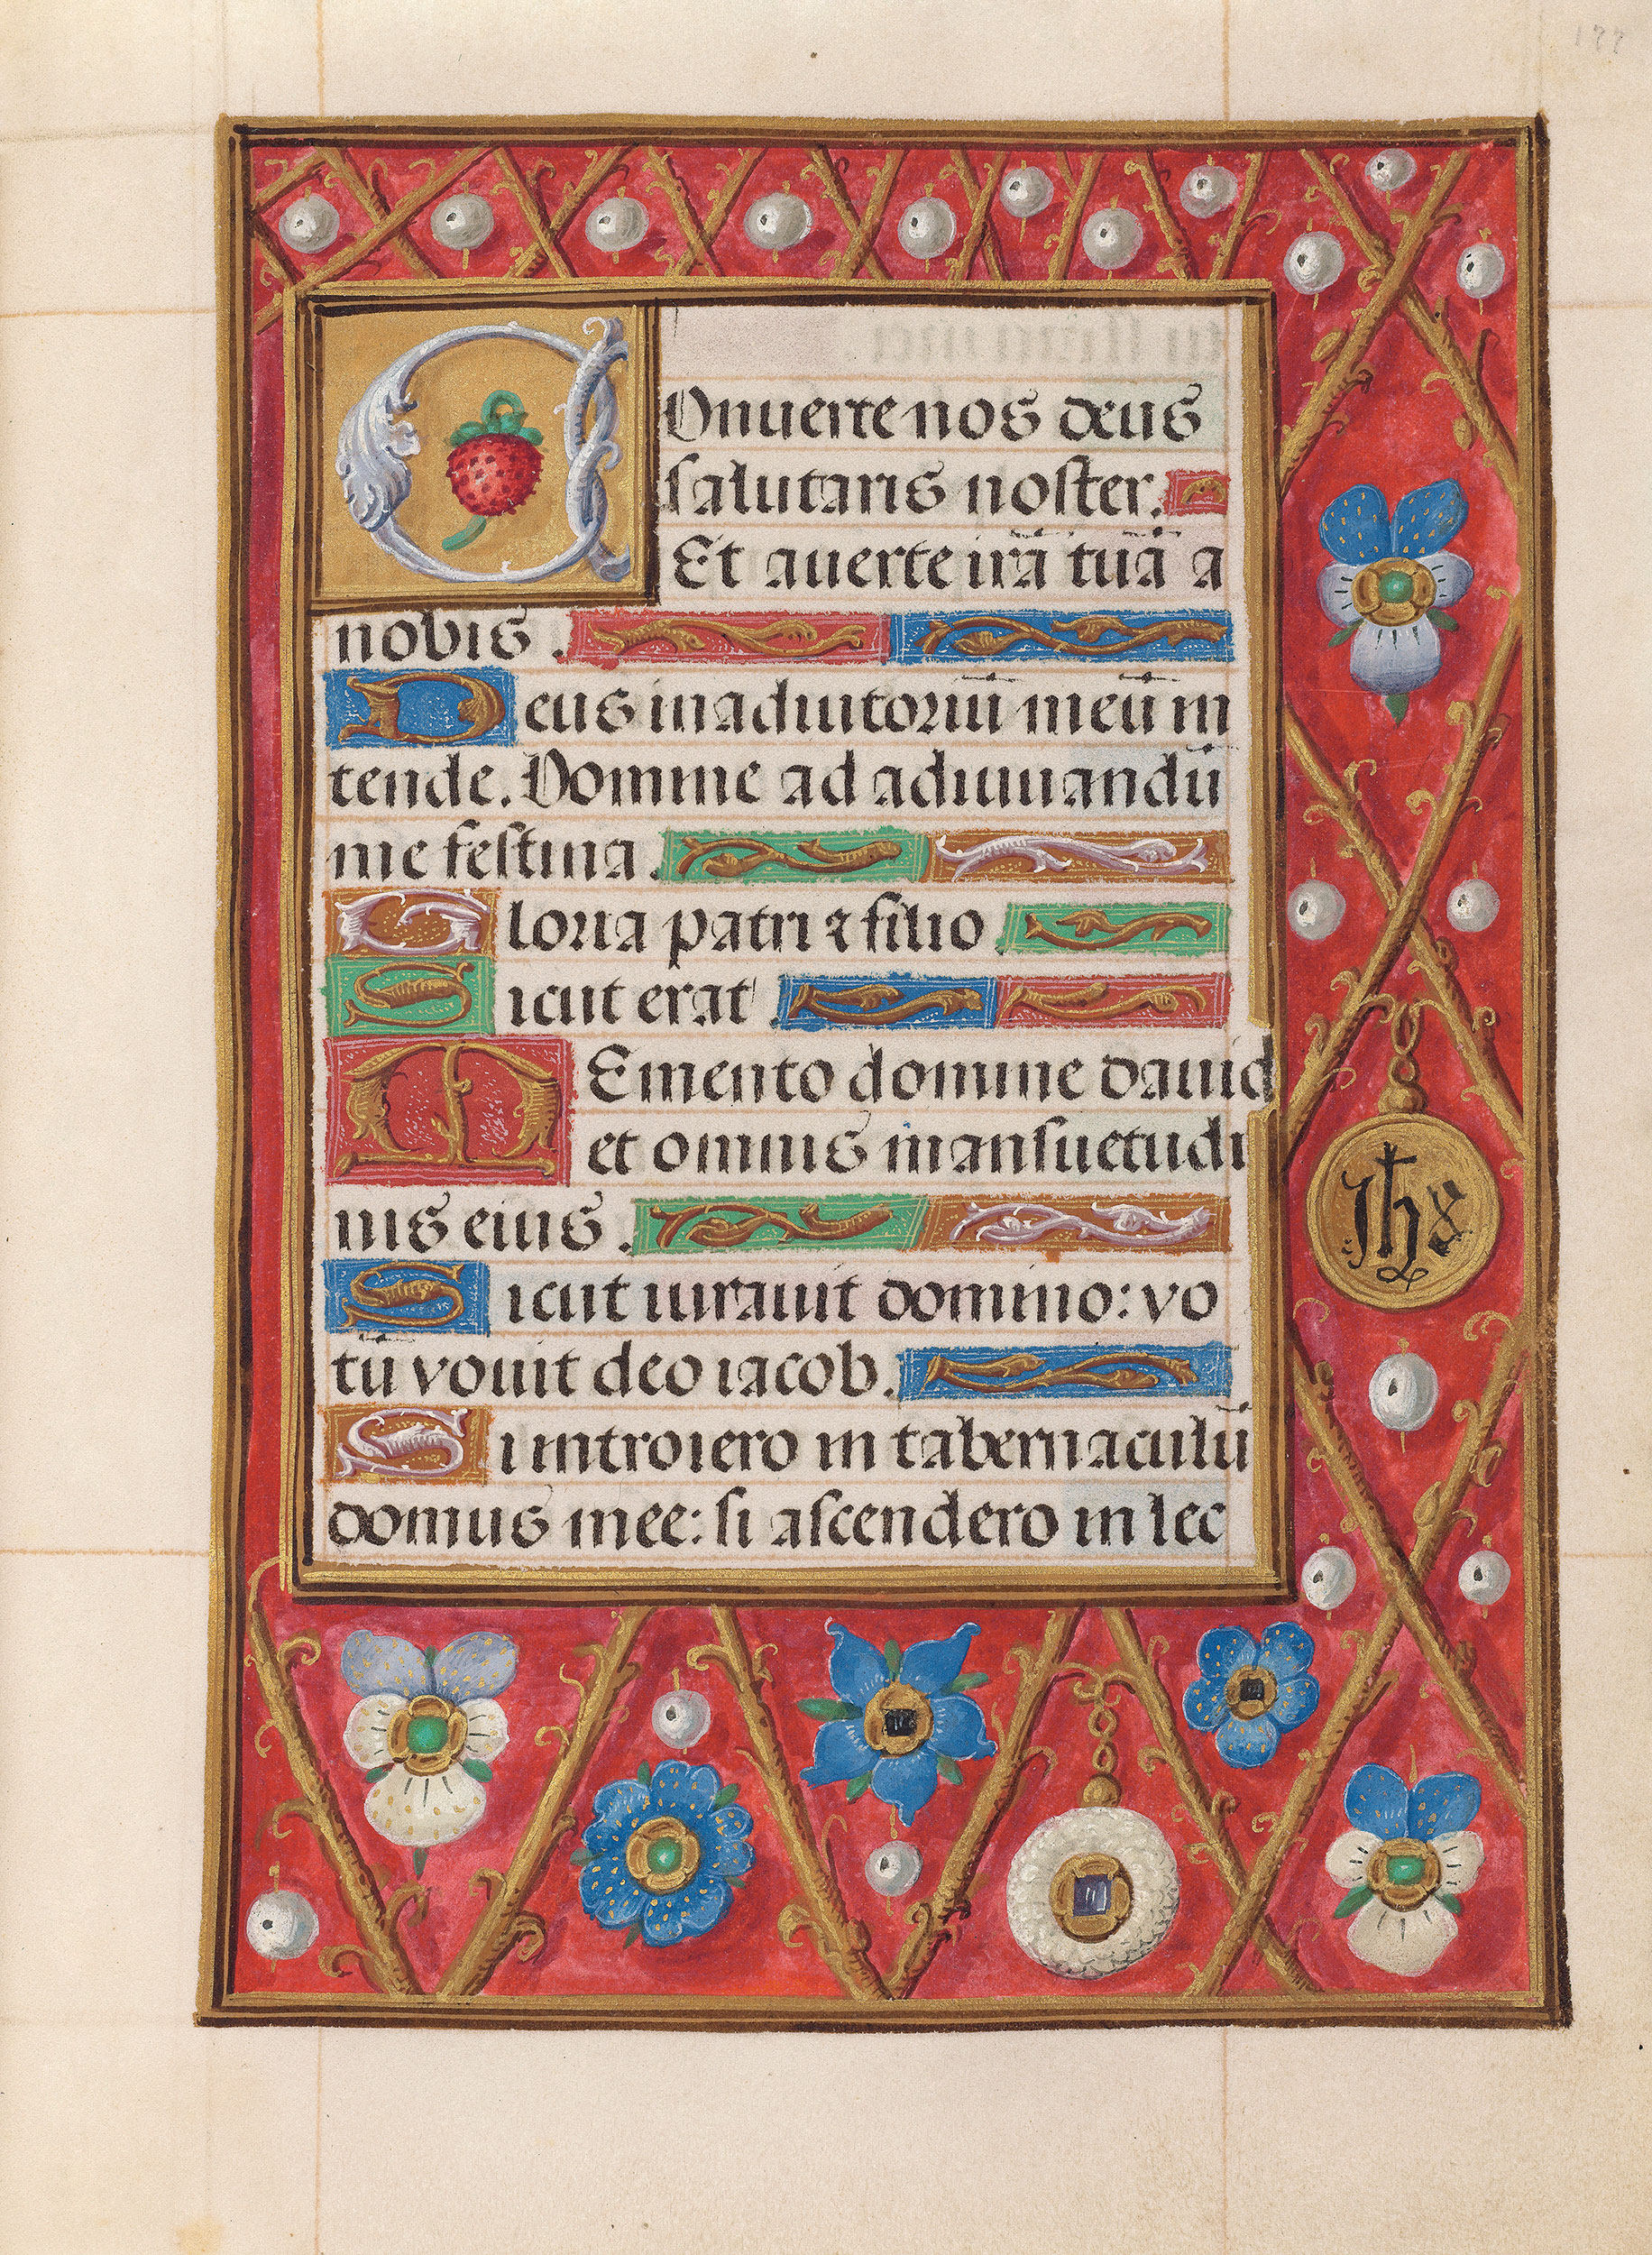 Conuerte nos deus
salutaris noster.
Et auerte irā tuā a
nobis.
Deus in adiutoriū meū in
tende. Domine ad adiuuandū
me festina.
Gloria patri ⁊ filio.
Sicut erat.
MEmento domine dauid
et omnis mansuetudi
nis eius.
Sicut iurauit domino: vo
tū vouit deo iacob.
Si introiero in tabernaculū
domus mee: si ascendero in lec
ihs